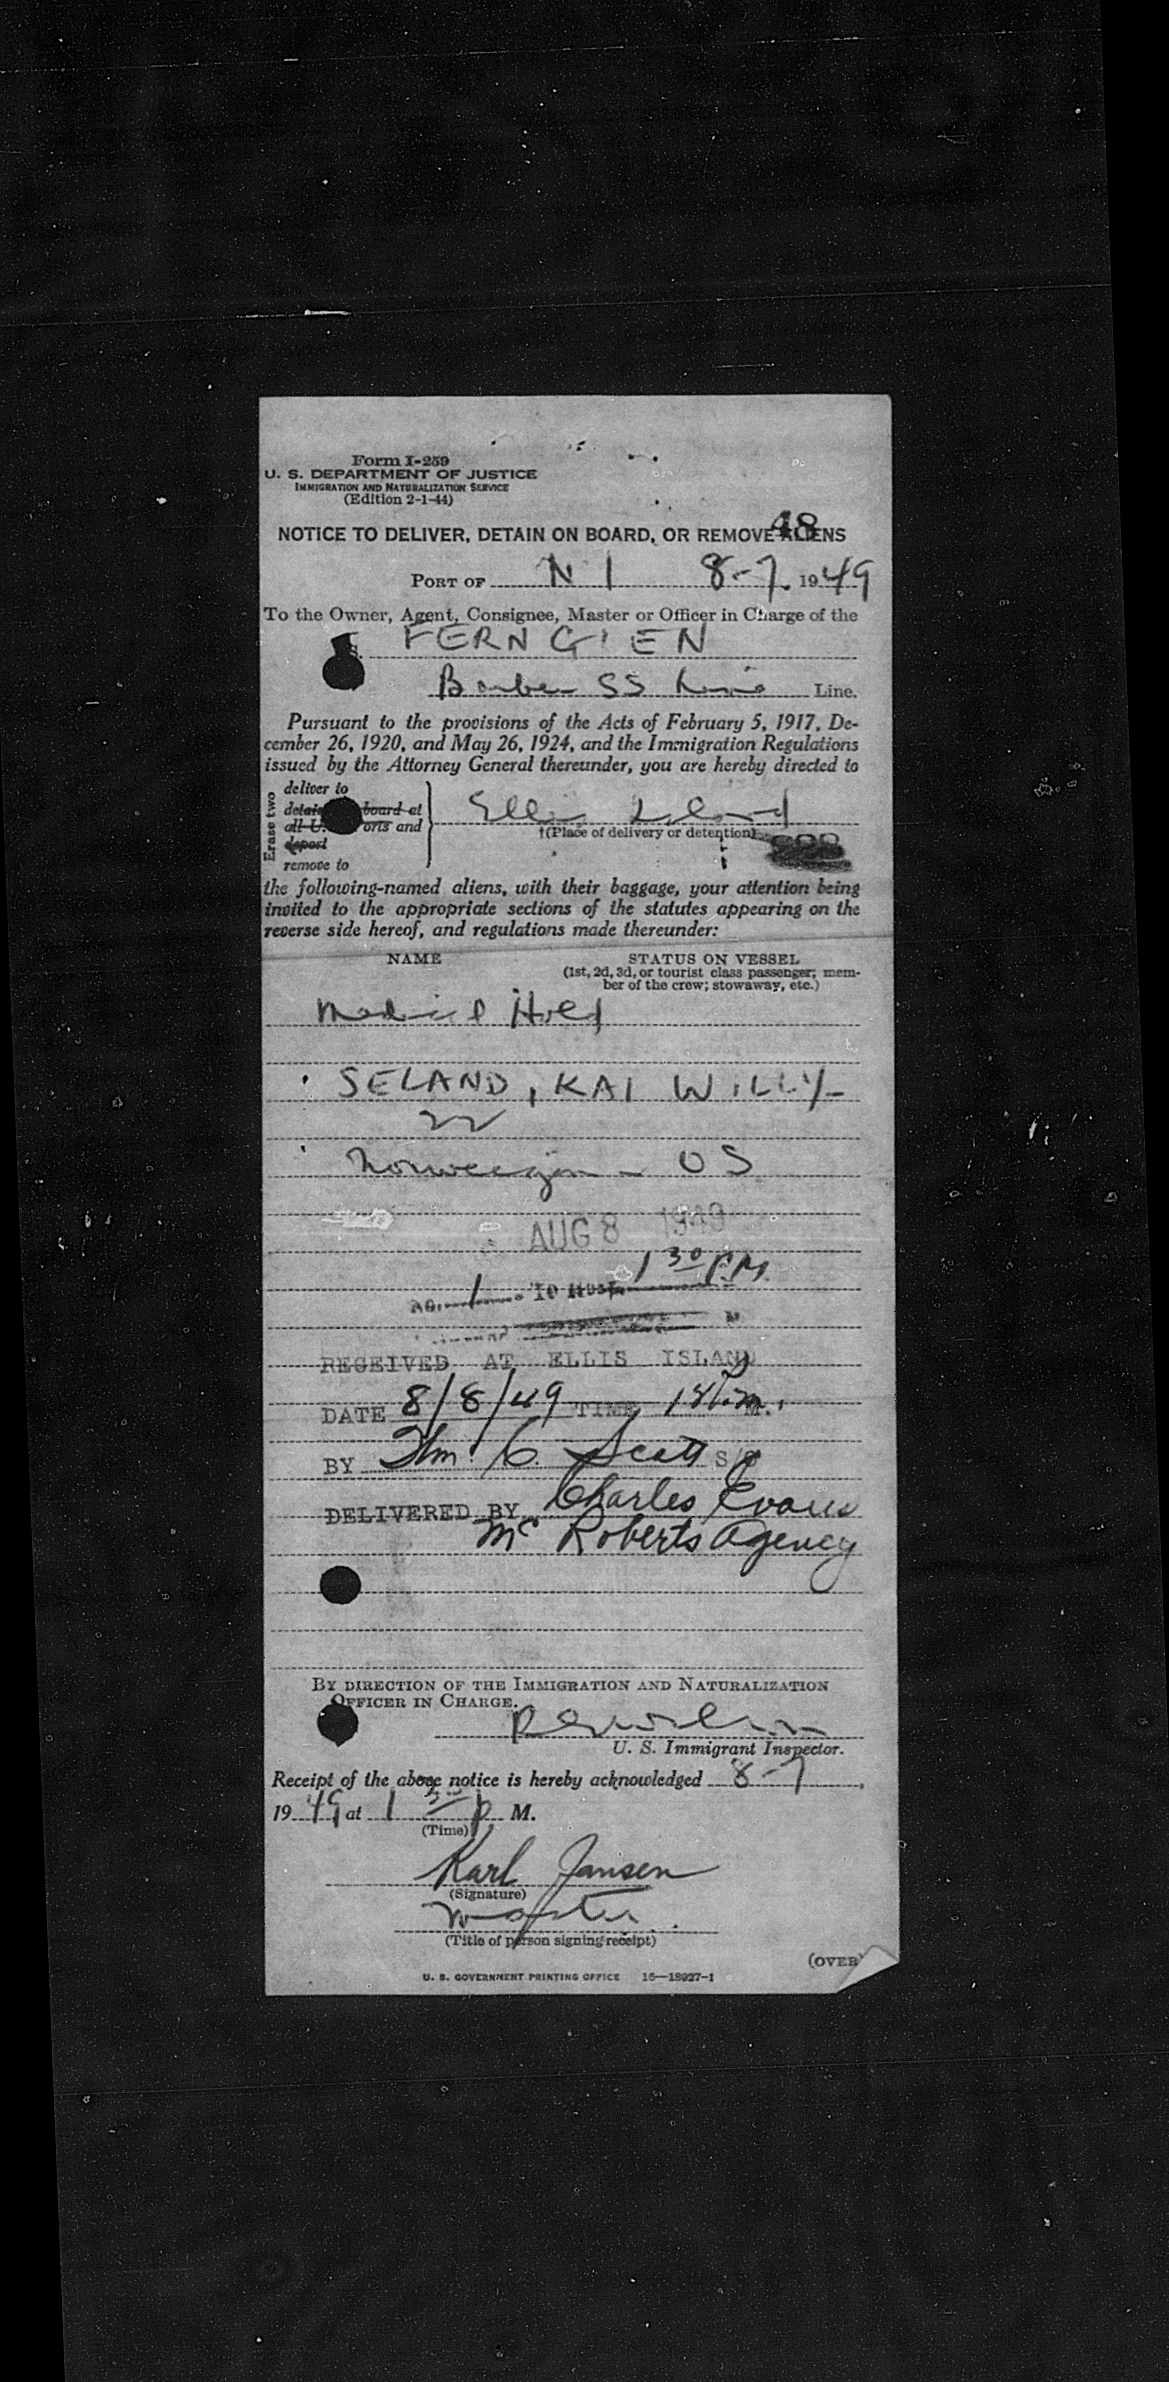 Form I-259
U. S. DEPARTMENT OF JUSTICE
IMMIGRATION AND NATURALIZATION SERVICE
(Edition 2-1-44)
48
NOTICE TO DELIVER, DETAIN ON BOARD, OR REMOVE ALIENS
PORT OF N 8-7 1949
To the Owner, Agent, Consignee, Master or Officer in Charge of the
S. FERNGLEN
Barber SS Line Line.
Pursuant to the provisions of the Acts of February 5, 1917, De-
cember 26, 1920, and May 26, 1924, and the Immigration Regulations
issued by the Attorney General thereunder, you are hereby directed to
Erase two
deliver to
detain board at
all U. orts and
deport
remove to
Ellis Island
†(Place of delivery or detention)
the following-named aliens, with their baggage, your attention being
invited to the appropriate sections of the statutes appearing on the
reverse side hereof, and regulations made thereunder:
NAME STATUS ON VESSEL
(1st, 2d, 3d, or tourist class passenger; mem-
ber of the crew; stowaway, etc.)
Medical Hold
SELAND, KAI WILLY-
22
Norwegian - OS
AUG 8 1949
1 30 P.M.
NO. 1
RECEIVED AT ELLIS ISLAND
DATE 8/8/49 TIME M.
BY Wm. C. Scott S/
DELIVERED BY Charles Evans
Mc Roberts Agency
BY DIRECTION OF THE IMMIGRATION AND NATURALIZATION
OFFICER IN CHARGE.
U. S. Immigrant Inspector.
Receipt of the above notice is hereby acknowledged 8-7,
1949 at 1 30 p M.
(Time)
Karl Jansen
(Signature)
Master
(Title of person signing receipt)
(OVER)
U. S. GOVERNMENT PRINTING OFFICE 16—18927-1